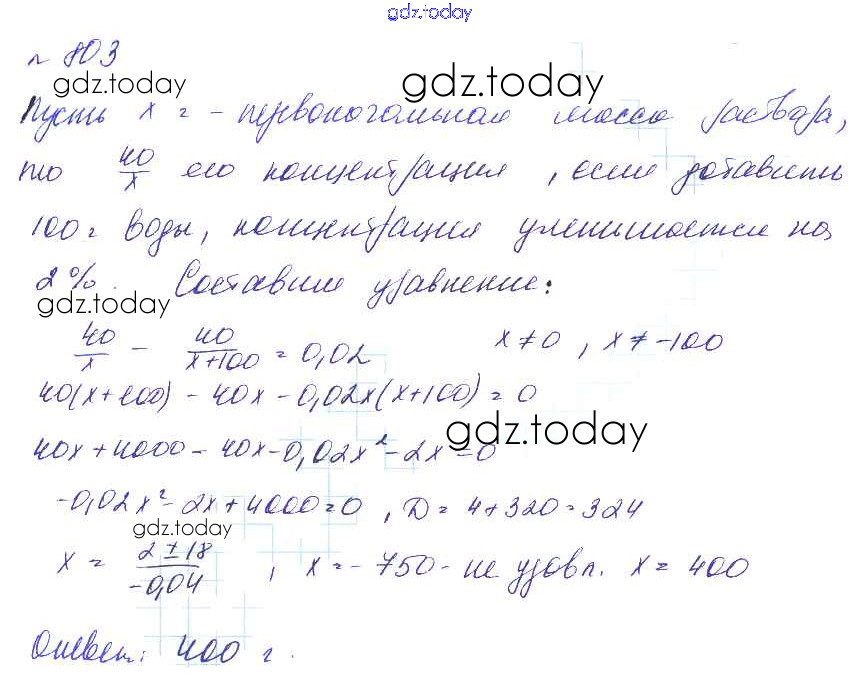 gdz.today
№ 803
gdz.today gdz.today
Пусть x г - первоначальная масса раствора,
то 40/x его концентрация, если добавить
100 г воды, концентрация уменьшается на
2%. Составим уравнение:
gdz.today
40/x - 40/(x+100) = 0,02 x ≠ 0, x ≠ -100
40(x+100) - 40x - 0,02x(x+100) = 0
gdz.today
40x + 4000 - 40x - 0,02x² - 2x = 0
-0,02x² - 2x + 4000 = 0, D = 4 + 320 = 324
gdz.today
x = (2 ± 18)/(-0,04), x = -750 - не удовл. x = 400
Ответ: 400 г.